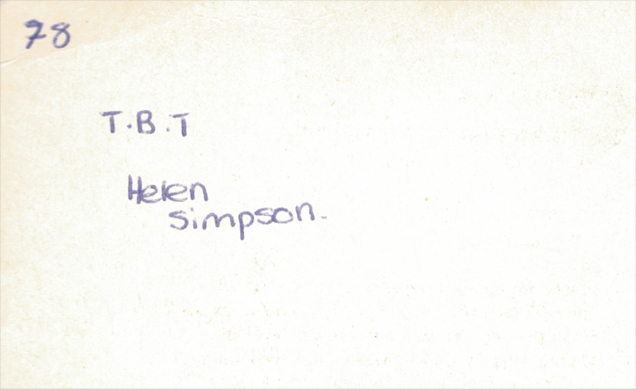 78
T.B.T
Helen
Simpson.